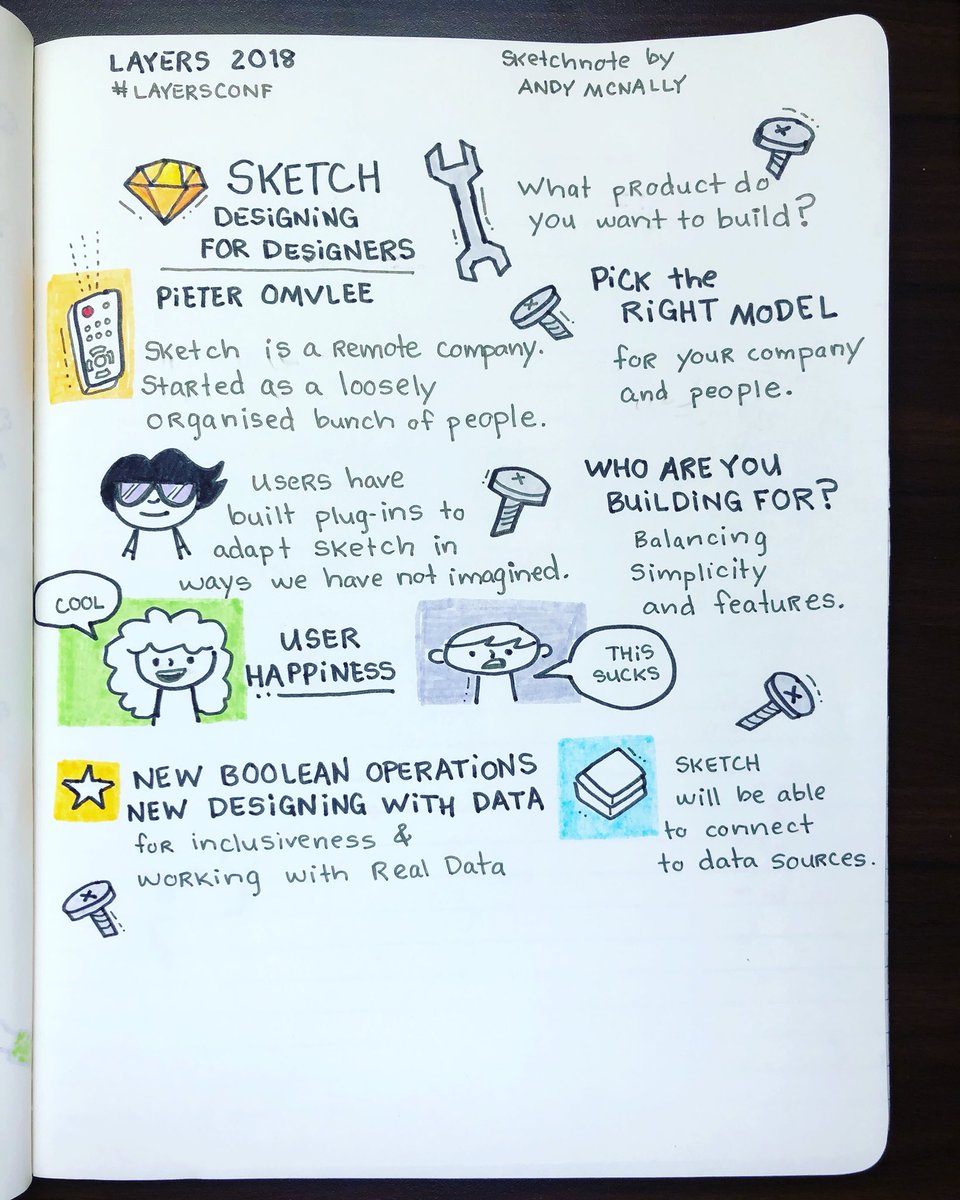 LAYERS 2018
#LAYERSCONF
Sketchnote by
ANDY MCNALLY
SKETCH
DESIGNING
FOR DESIGNERS
PIETER OMVLEE
Sketch is a Remote company.
Started as a loosely
organised bunch of people.
What product do
you want to build?
Pick the
RIGHT MODEL
for your company
and people.
users have
built plug-ins to
adapt sketch in
ways we have not imagined.
WHO ARE YOU
BUILDING FOR?
Balancing
Simplicity
and features.
COOL
USER
HAPPINESS
THIS
SUCKS
NEW BOOLEAN OPERATIONS
NEW DESIGNING WITH DATA
for inclusiveness &
working with Real Data
SKETCH
will be able
to connect
to data sources.